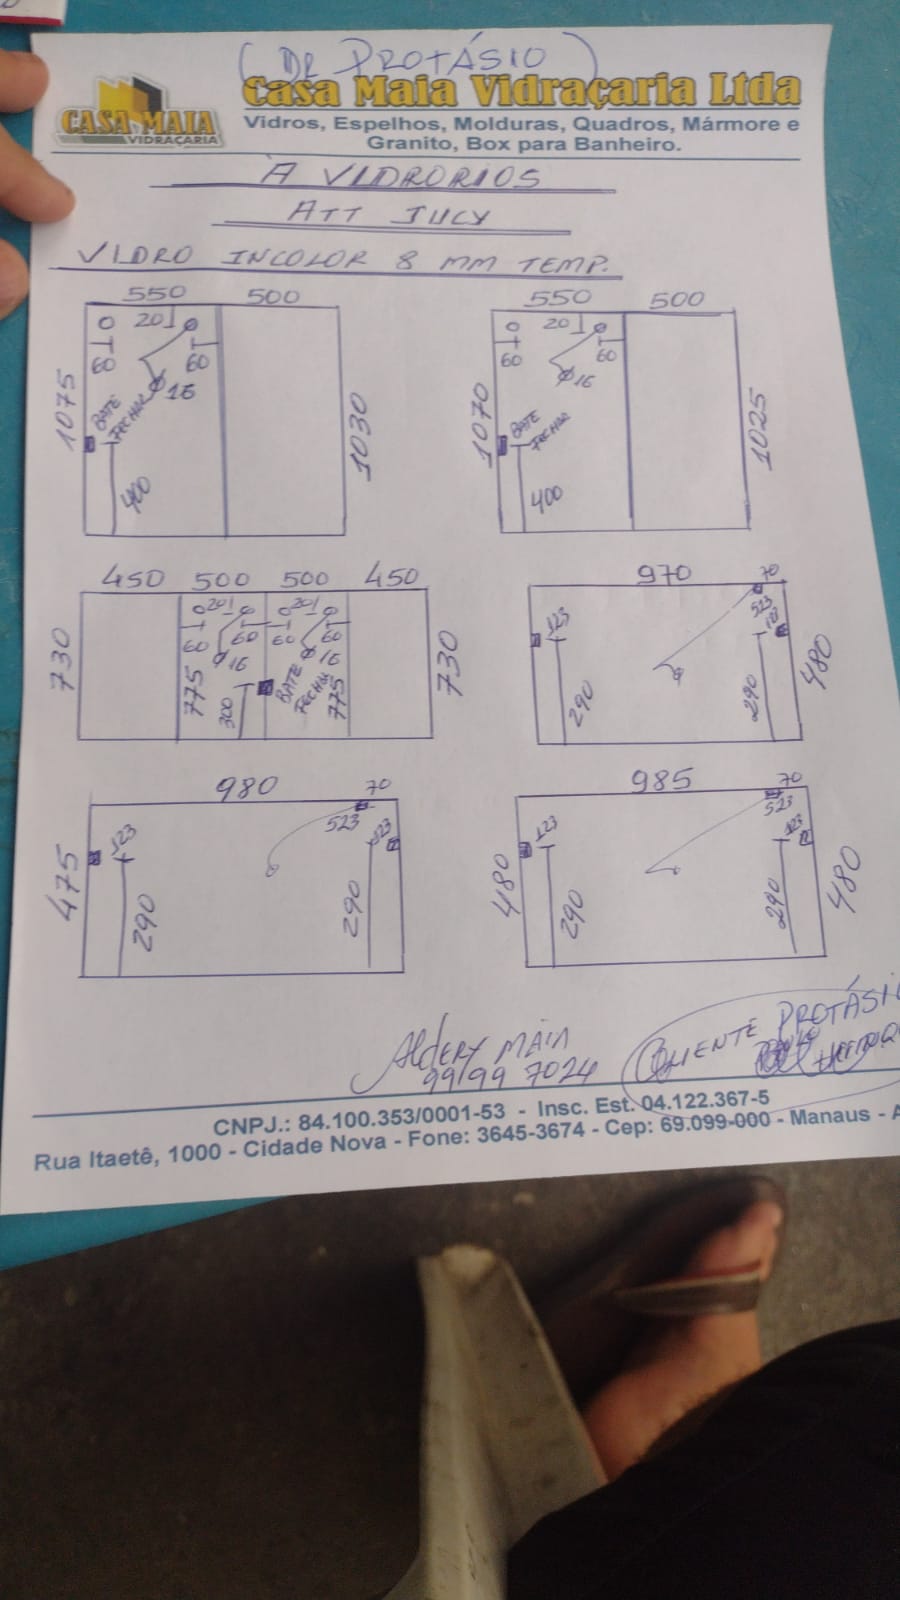 (DR PROTÁSIO)
CASA MAIA
VIDRAÇARIA
Casa Maia Vidraçaria Ltda
Vidros, Espelhos, Molduras, Quadros, Mármore e
Granito, Box para Banheiro.
A VIDRORIOS
ATT JUCY
VIDRO INCOLOR 8 MM TEMP.
550 500
20
60 60
Ø16
1075
BATE
FECHAR
400
1030
550 500
20
60 60
Ø16
1070
BATE
FECHAR
400
1025
450 500 500 450
20 20
60 60 60 60
Ø16 Ø16
730
775
300
BATE
FECHAR
775
730
970 70
123 523 123
290 290
480
980 70
123 523 123
475
290 290
985 70
123 523 123
480
290 290
480
ALDERY MAIA
99199 7024
CLIENTE PROTÁSIO
CNPJ.: 84.100.353/0001-53 - Insc. Est. 04.122.367-5
Rua Itaetê, 1000 - Cidade Nova - Fone: 3645-3674 - Cep: 69.099-000 - Manaus - A